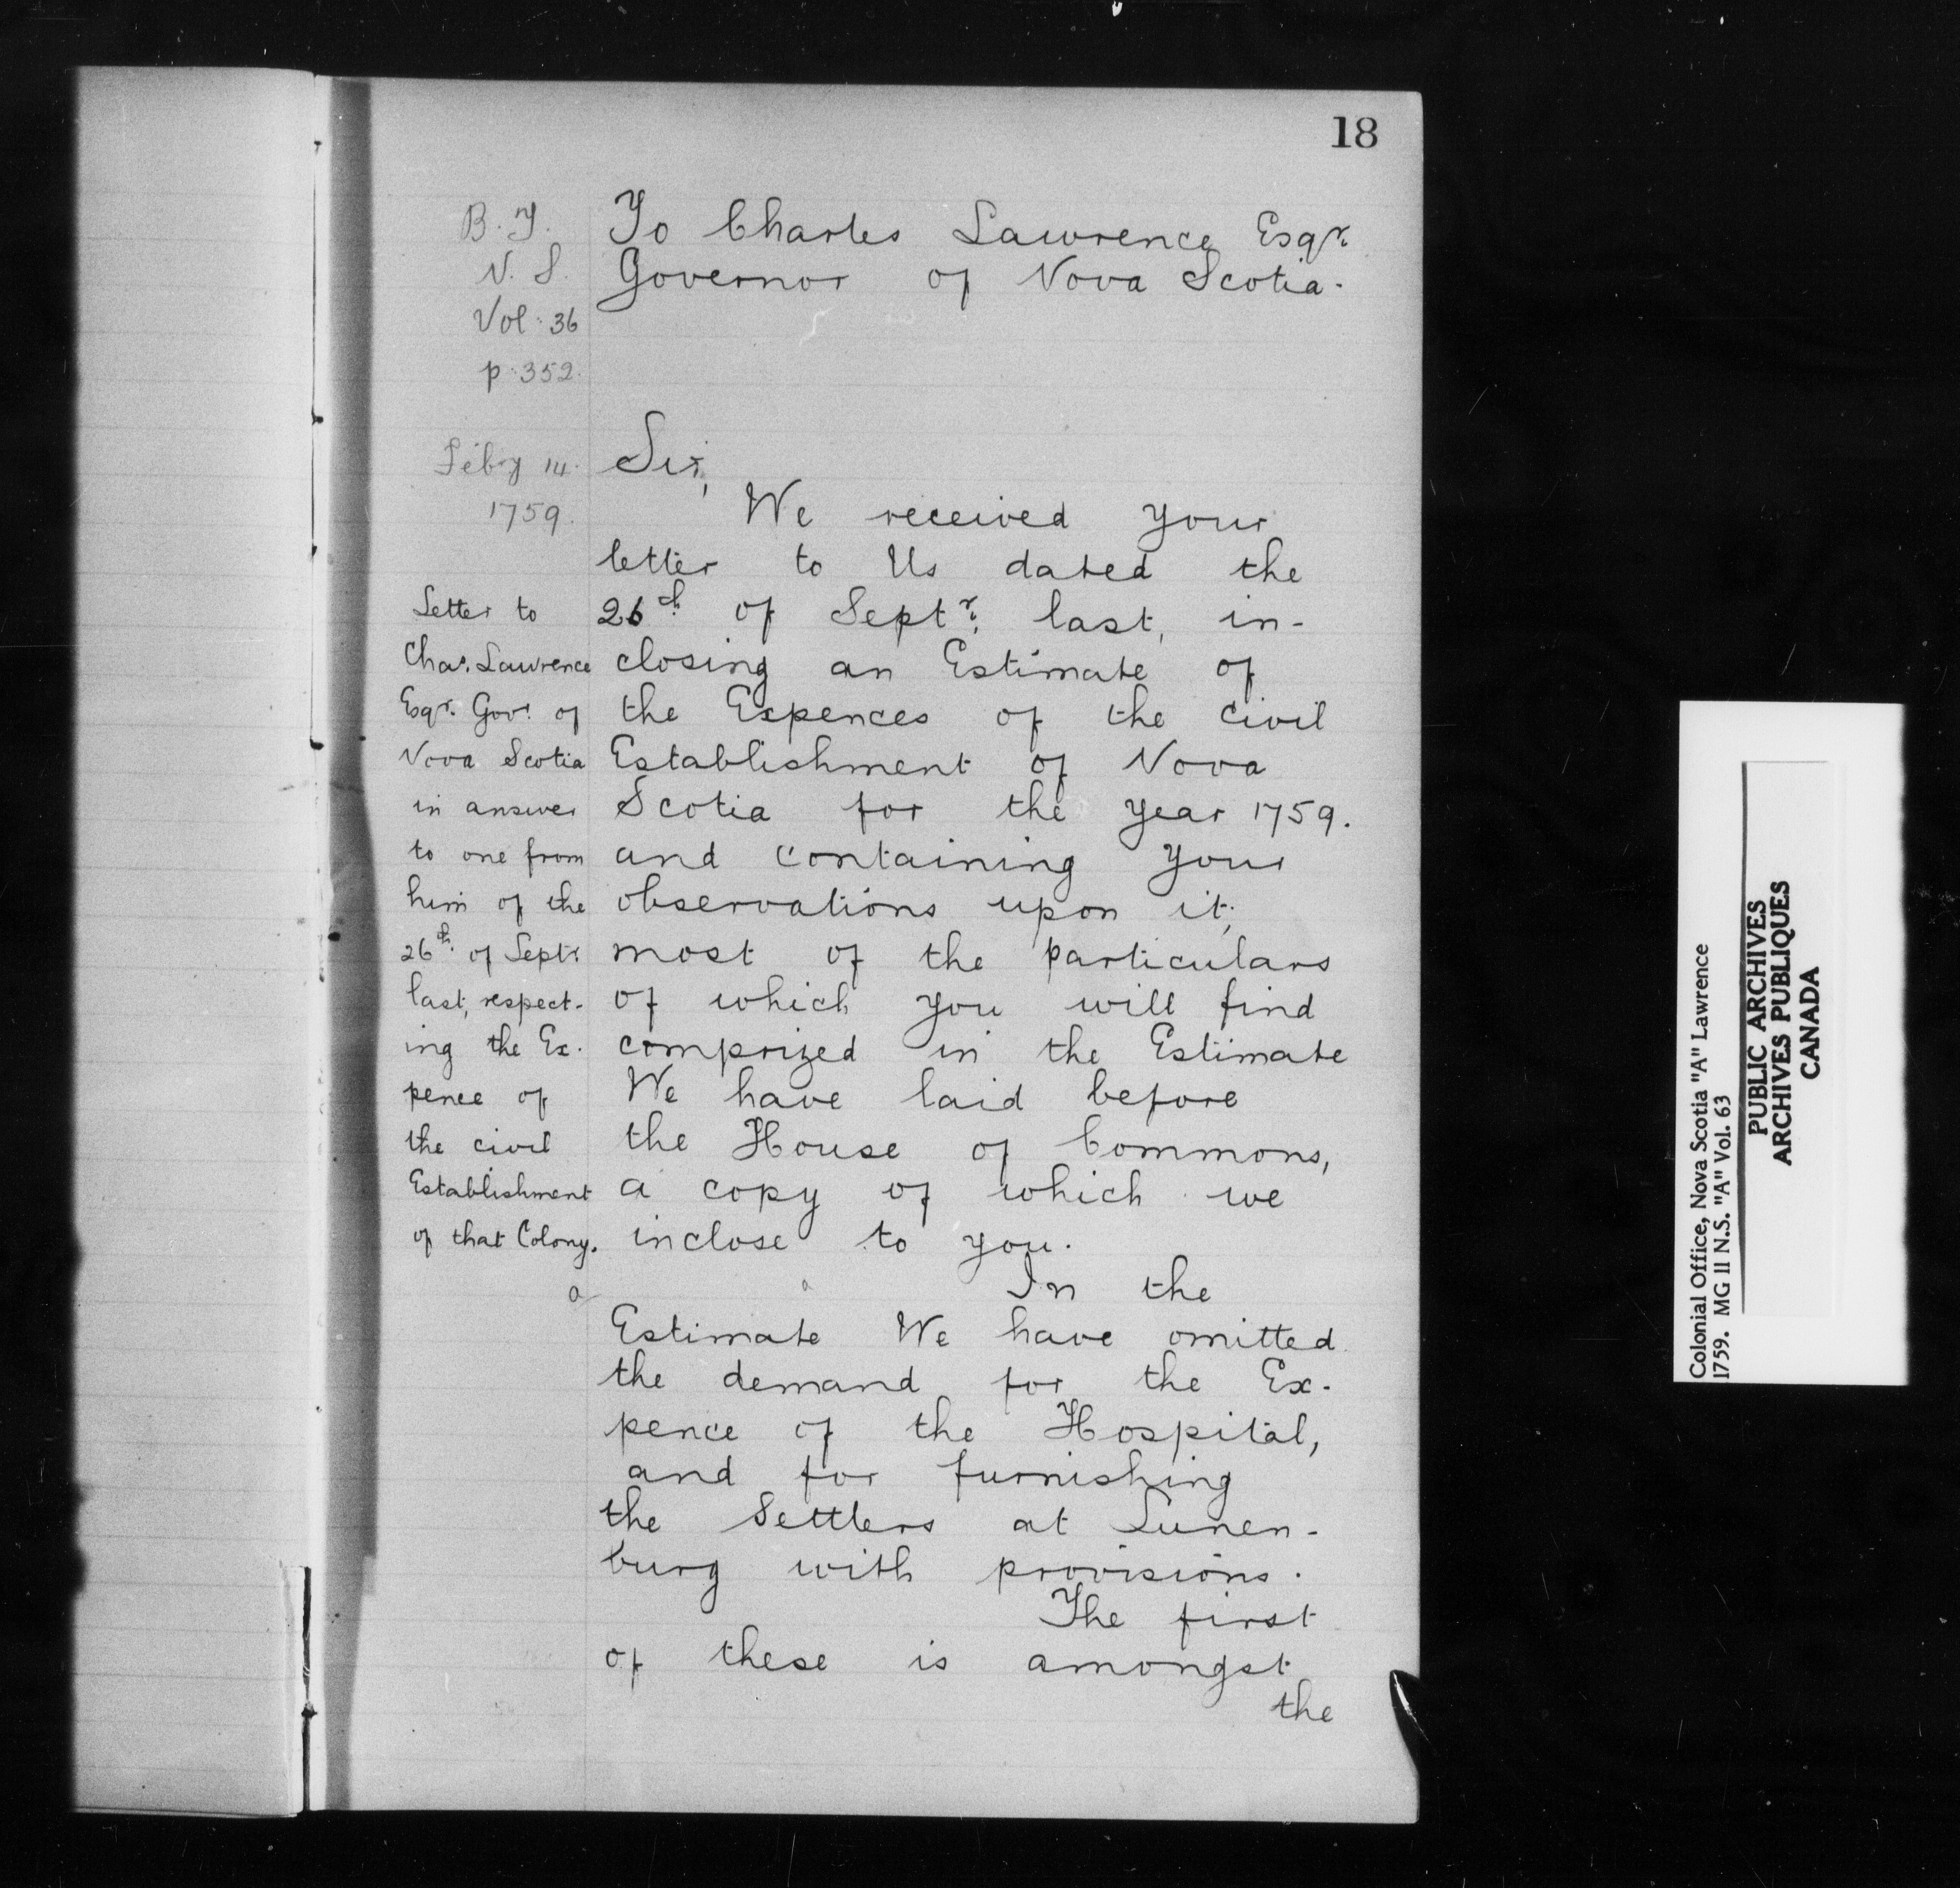 18
B. T.
N. S.
Vol. 36
p. 352.
Feby 14.
1759.
Letter to
Chas. Lawrence
Esqr. Govr. of
Nova Scotia
in answer
to one from
him of the
26th. of Septr.
last, respect-
ing the Ex-
pence of
the civil
Establishment
of that Colony.
To Charles Lawrence Esqr.
Governor of Nova Scotia.
Sir,
We received your
letter to Us dated the
26th. of Septr. last, in-
closing an Estimate of
the Expences of the civil
Establishment of Nova
Scotia for the year 1759.
and containing your
observations upon it;
most of the particulars
of which you will find
comprized in the Estimate
We have laid before
the House of Commons,
a copy of which we
inclose to you.
In the
Estimate We have omitted
the demand for the Ex-
pence of the Hospital,
and for furnishing
the Settlers at Lunen-
burg with provisions.
The first
of these is amongst
the
Colonial Office, Nova Scotia "A" Lawrence
1759. MG 11 N.S. "A" Vol. 63
PUBLIC ARCHIVES
ARCHIVES PUBLIQUES
CANADA